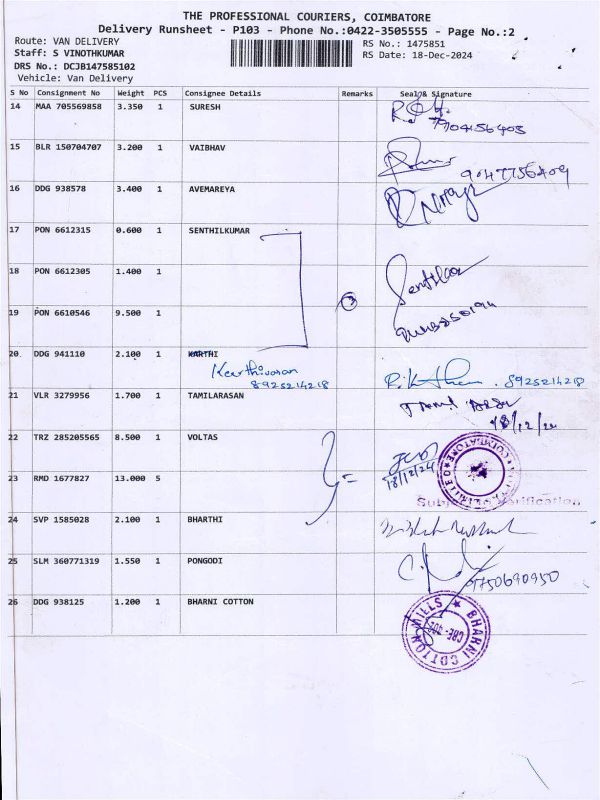 THE PROFESSIONAL COURIERS, COIMBATORE
Delivery Runsheet - P103 - Phone No.:0422-3505555 - Page No.:2
Route: VAN DELIVERY RS No.: 1475851
Staff: S VINOTHKUMAR RS Date: 18-Dec-2024
DRS No.: DCJB147585102
Vehicle: Van Delivery
S No Consignment No Weight PCS Consignee Details Remarks Seal & Signature
14 MAA 705569858 3.350 1 SURESH
7904156405
15 BLR 150704707 3.200 1 VAIBHAV
9047756409
16 DDG 938578 3.400 1 AVEMAREYA
17 PON 6612315 0.600 1 SENTHILKUMAR
18 PON 6612305 1.400 1
19 PON 6610546 9.500 1 3
20 DDG 941110 2.100 1 KARTHI
8925214218 8925214218
21 VLR 3279956 1.700 1 TAMILARASAN
18/12/24
22 TRZ 285205565 8.500 1 VOLTAS
18/12/24
23 RMD 1677827 13.000 5
Subject to Verification
24 SVP 1585028 2.100 1 BHARTHI
25 SLM 360771319 1.550 1 PONGODI
9750690950
26 DDG 938125 1.200 1 BHARNI COTTON
BHARNI COTTON MILLS